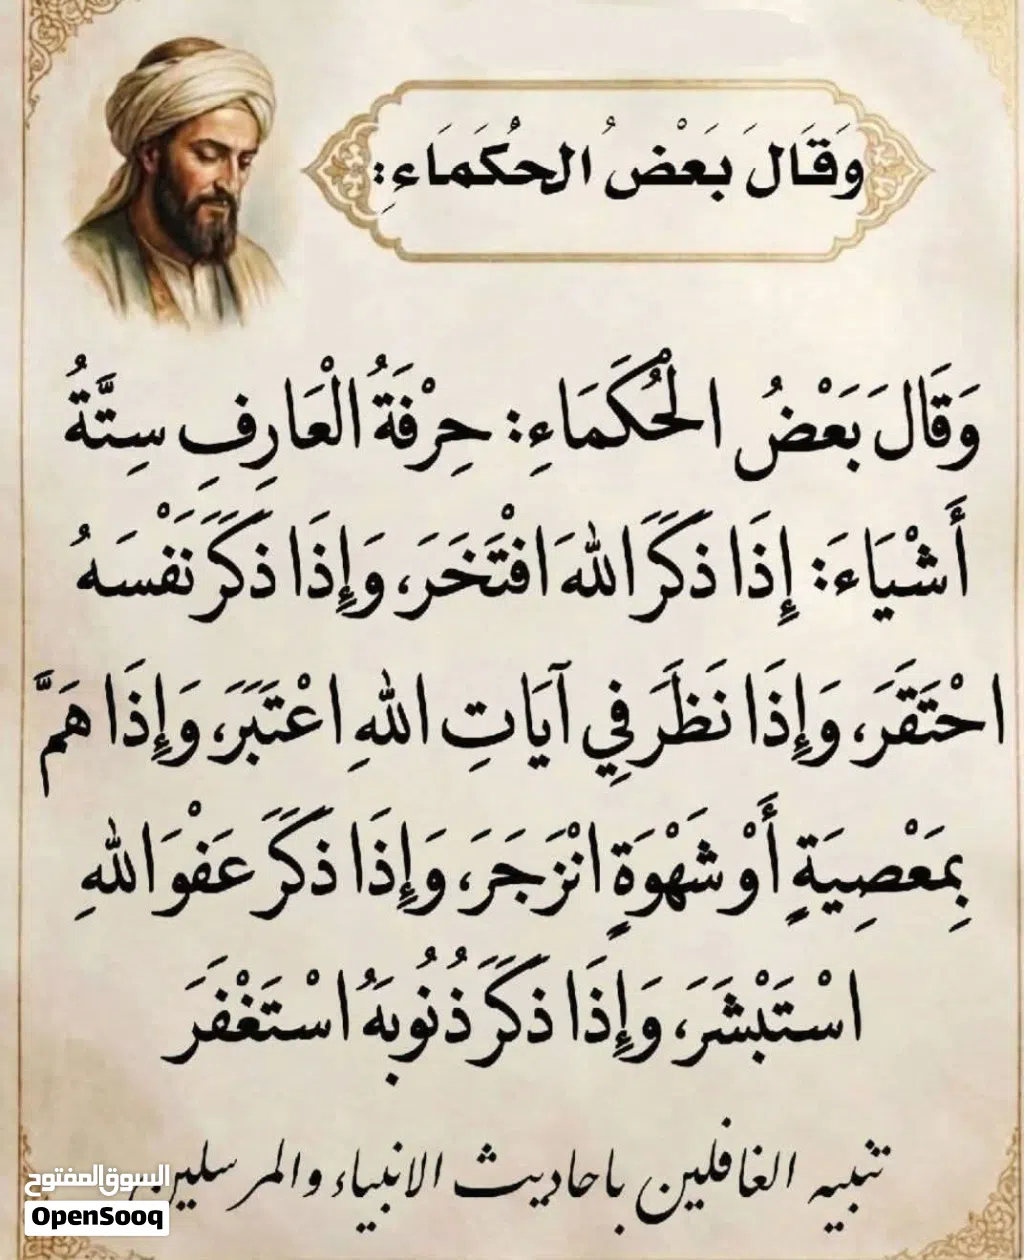 وَقَالَ بَعْضُ الحُكَمَاءِ:
وَقَالَ بَعْضُ الْحُكَمَاءِ: حِرْفَةُ الْعَارِفِ سِتَّةُ
أَشْيَاءَ: إِذَا ذَكَرَ اللهَ افْتَخَرَ، وَإِذَا ذَكَرَ نَفْسَهُ
احْتَقَرَ، وَإِذَا نَظَرَ فِي آيَاتِ اللهِ اعْتَبَرَ، وَإِذَا هَمَّ
بِمَعْصِيَةٍ أَوْ شَهْوَةٍ انْزَجَرَ، وَإِذَا ذَكَرَ عَفْوَ اللهِ
اسْتَبْشَرَ، وَإِذَا ذَكَرَ ذُنُوبَهُ اسْتَغْفَرَ
تنبيه الغافلين باحاديث الانبياء والمرسلين
السوق المفتوح
OpenSooq